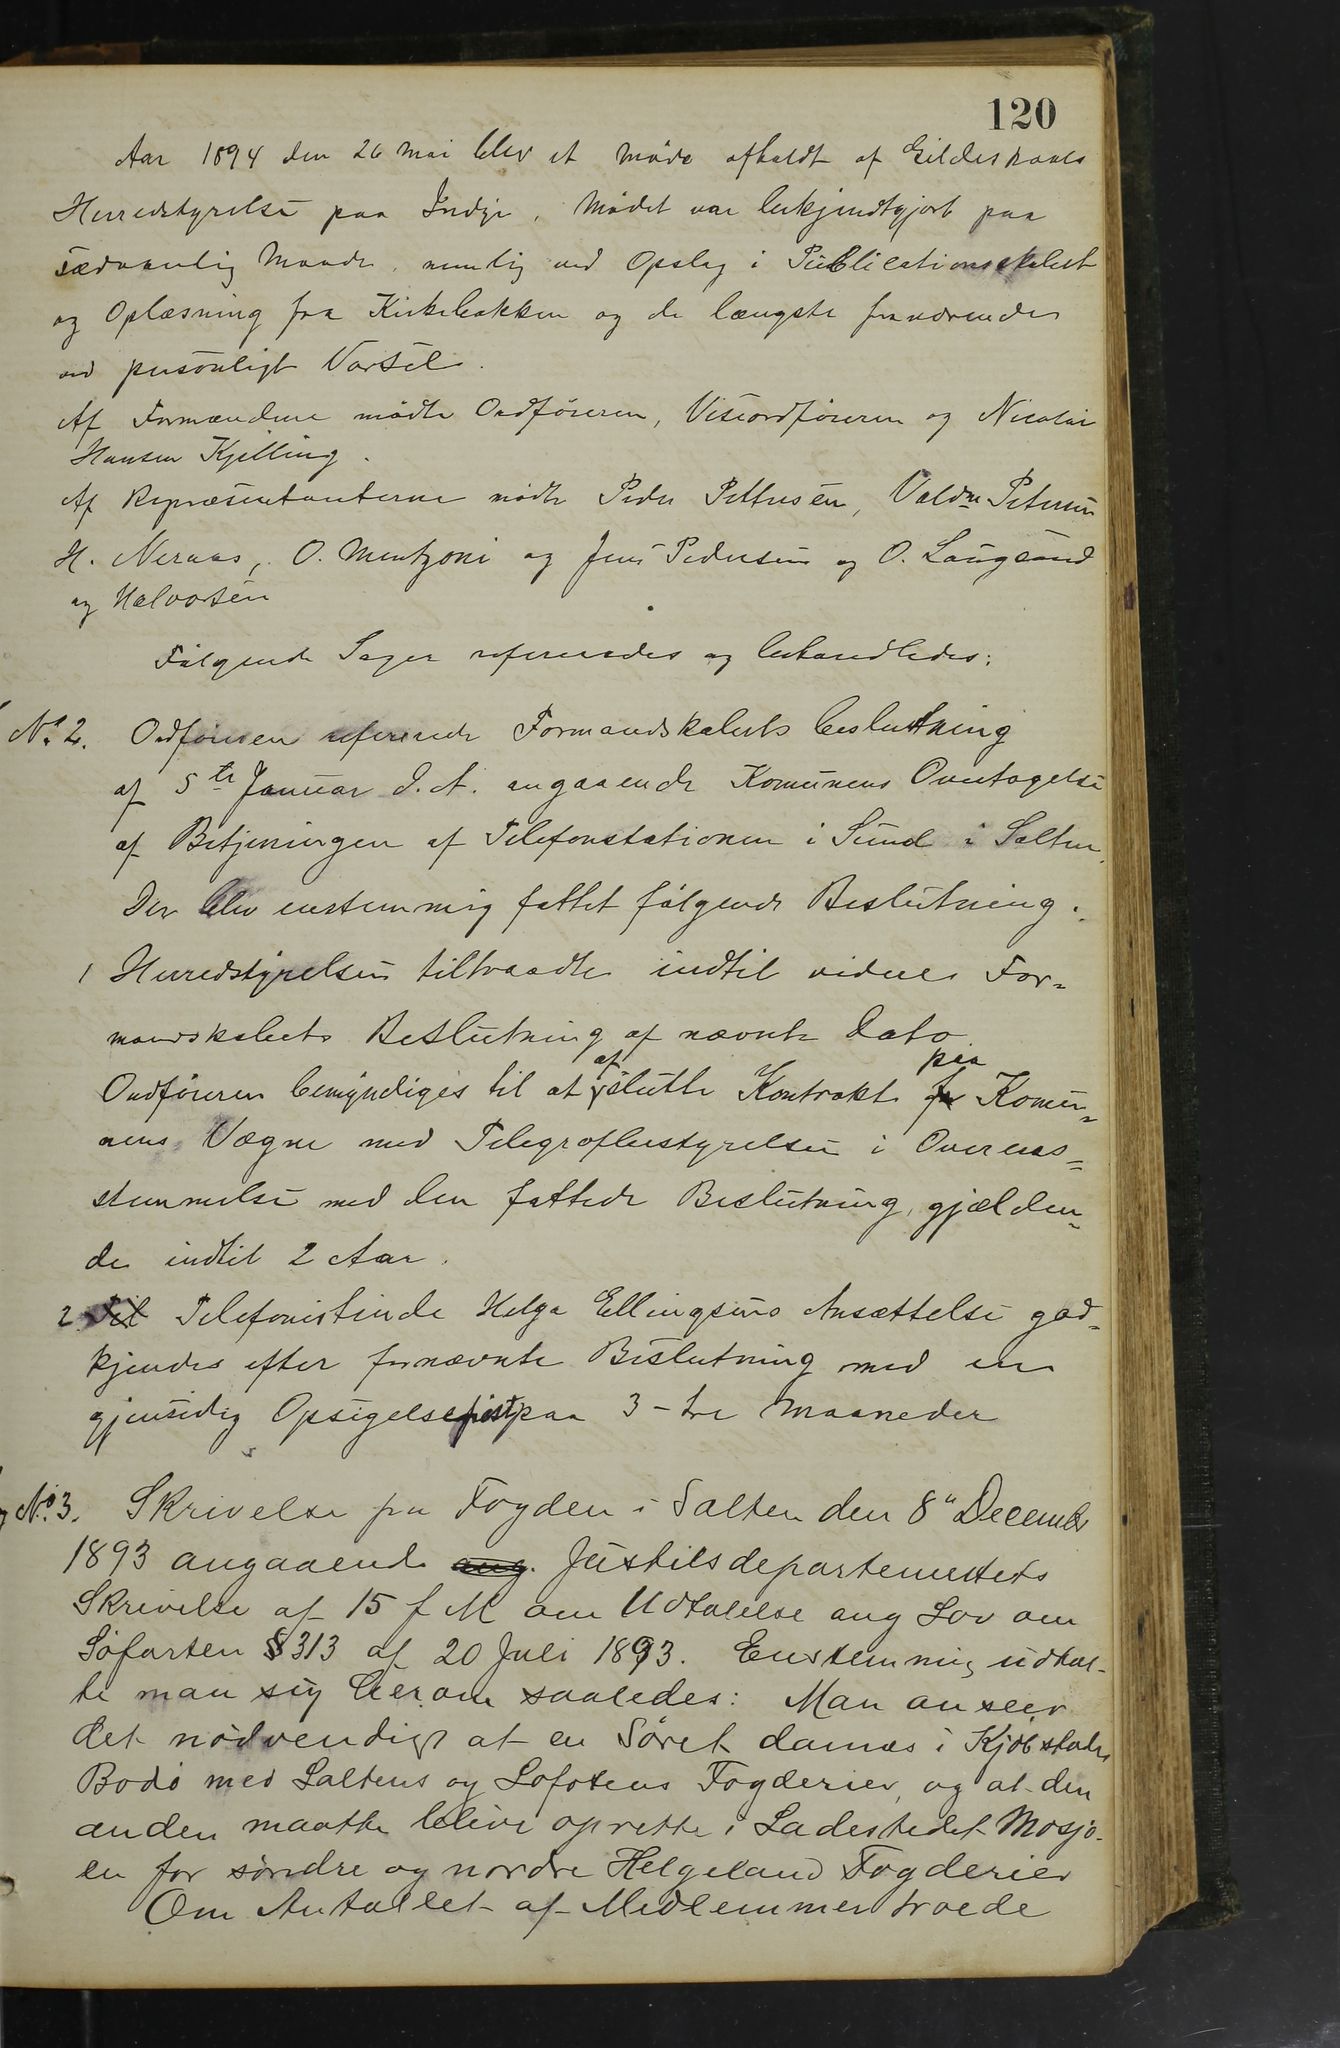 120
Aar 1894 den 26 Mai blev et Møde afholdt af Gildeskaals
Herredstyrelse paa Indyr. Mødet var bekjendtgjort paa
sædvanlig Maade, nemlig ved Opslag i Publicationsskabet
og Oplæsning fra Kirkebakken og de længste fraværende
ved personligt Varsel.
Af Formændene mødte Ordføreren, Viseordføreren og Nicolai
Hansen Kjelling.
Af Repræsentanterne mødte Peder Pettersen, Valdm Petersen
H. Neraas, O. Mentzoni og Jens Pedersen og O. Laugsand
og Halvorsen
Følgende Sager refereredes og behandledes:
No. 2. Ordføreren refererede Formandskabets beslutning
af 5te Januar d. A. angaaende Komunens Overtagelse
af Betjeningen af Telefonstationen i Sund i Salten.
Der blev enstemmig fattet følgende Beslutning:
1 Herredstyrelsen tiltraadte indtil videre For-
mandskabets Beslutning af nævnte Dato
af paa
Ordføreren bemyndiges til at slutte Kontrakt for Komu-
nens Vægne med Telegrafbestyrelsen i Overens-
stemmelse med den fattede Beslutning, gjælden-
de indtil 2 Aar.
2. Til Telefonistinde Helga Ellingsens Ansættelse god-
kjendes efter fornævnte Beslutning med en
gjensidig Opsigelsesfrist paa 3 - tre Maaneder
No. 3. Skrivelse fra Fogden i Salten den 8" December
1893 angaaende ang. Justitsdepartementets
Skrivelse af 15 f M om Udtalelse ang Lov om
Søfarten § 313 af 20 Juli 1893. Enstemmig udtal-
te man sig herom saaledes: Man anseer
det nødvendigt at en Søret dannes i Kjøbstaden
Bodø med Saltens og Lofotens Fogderier, og at den
anden maatte blive oprette i Ladestedet Mosjø-
en for søndre og nordre Helgeland Fogderier
Om Antallet af Medlemmer troede